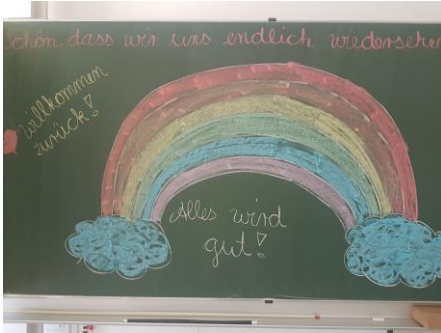 Schön, dass wir uns endlich wiedersehen
Willkommen
zurück!
Alles wird
gut!